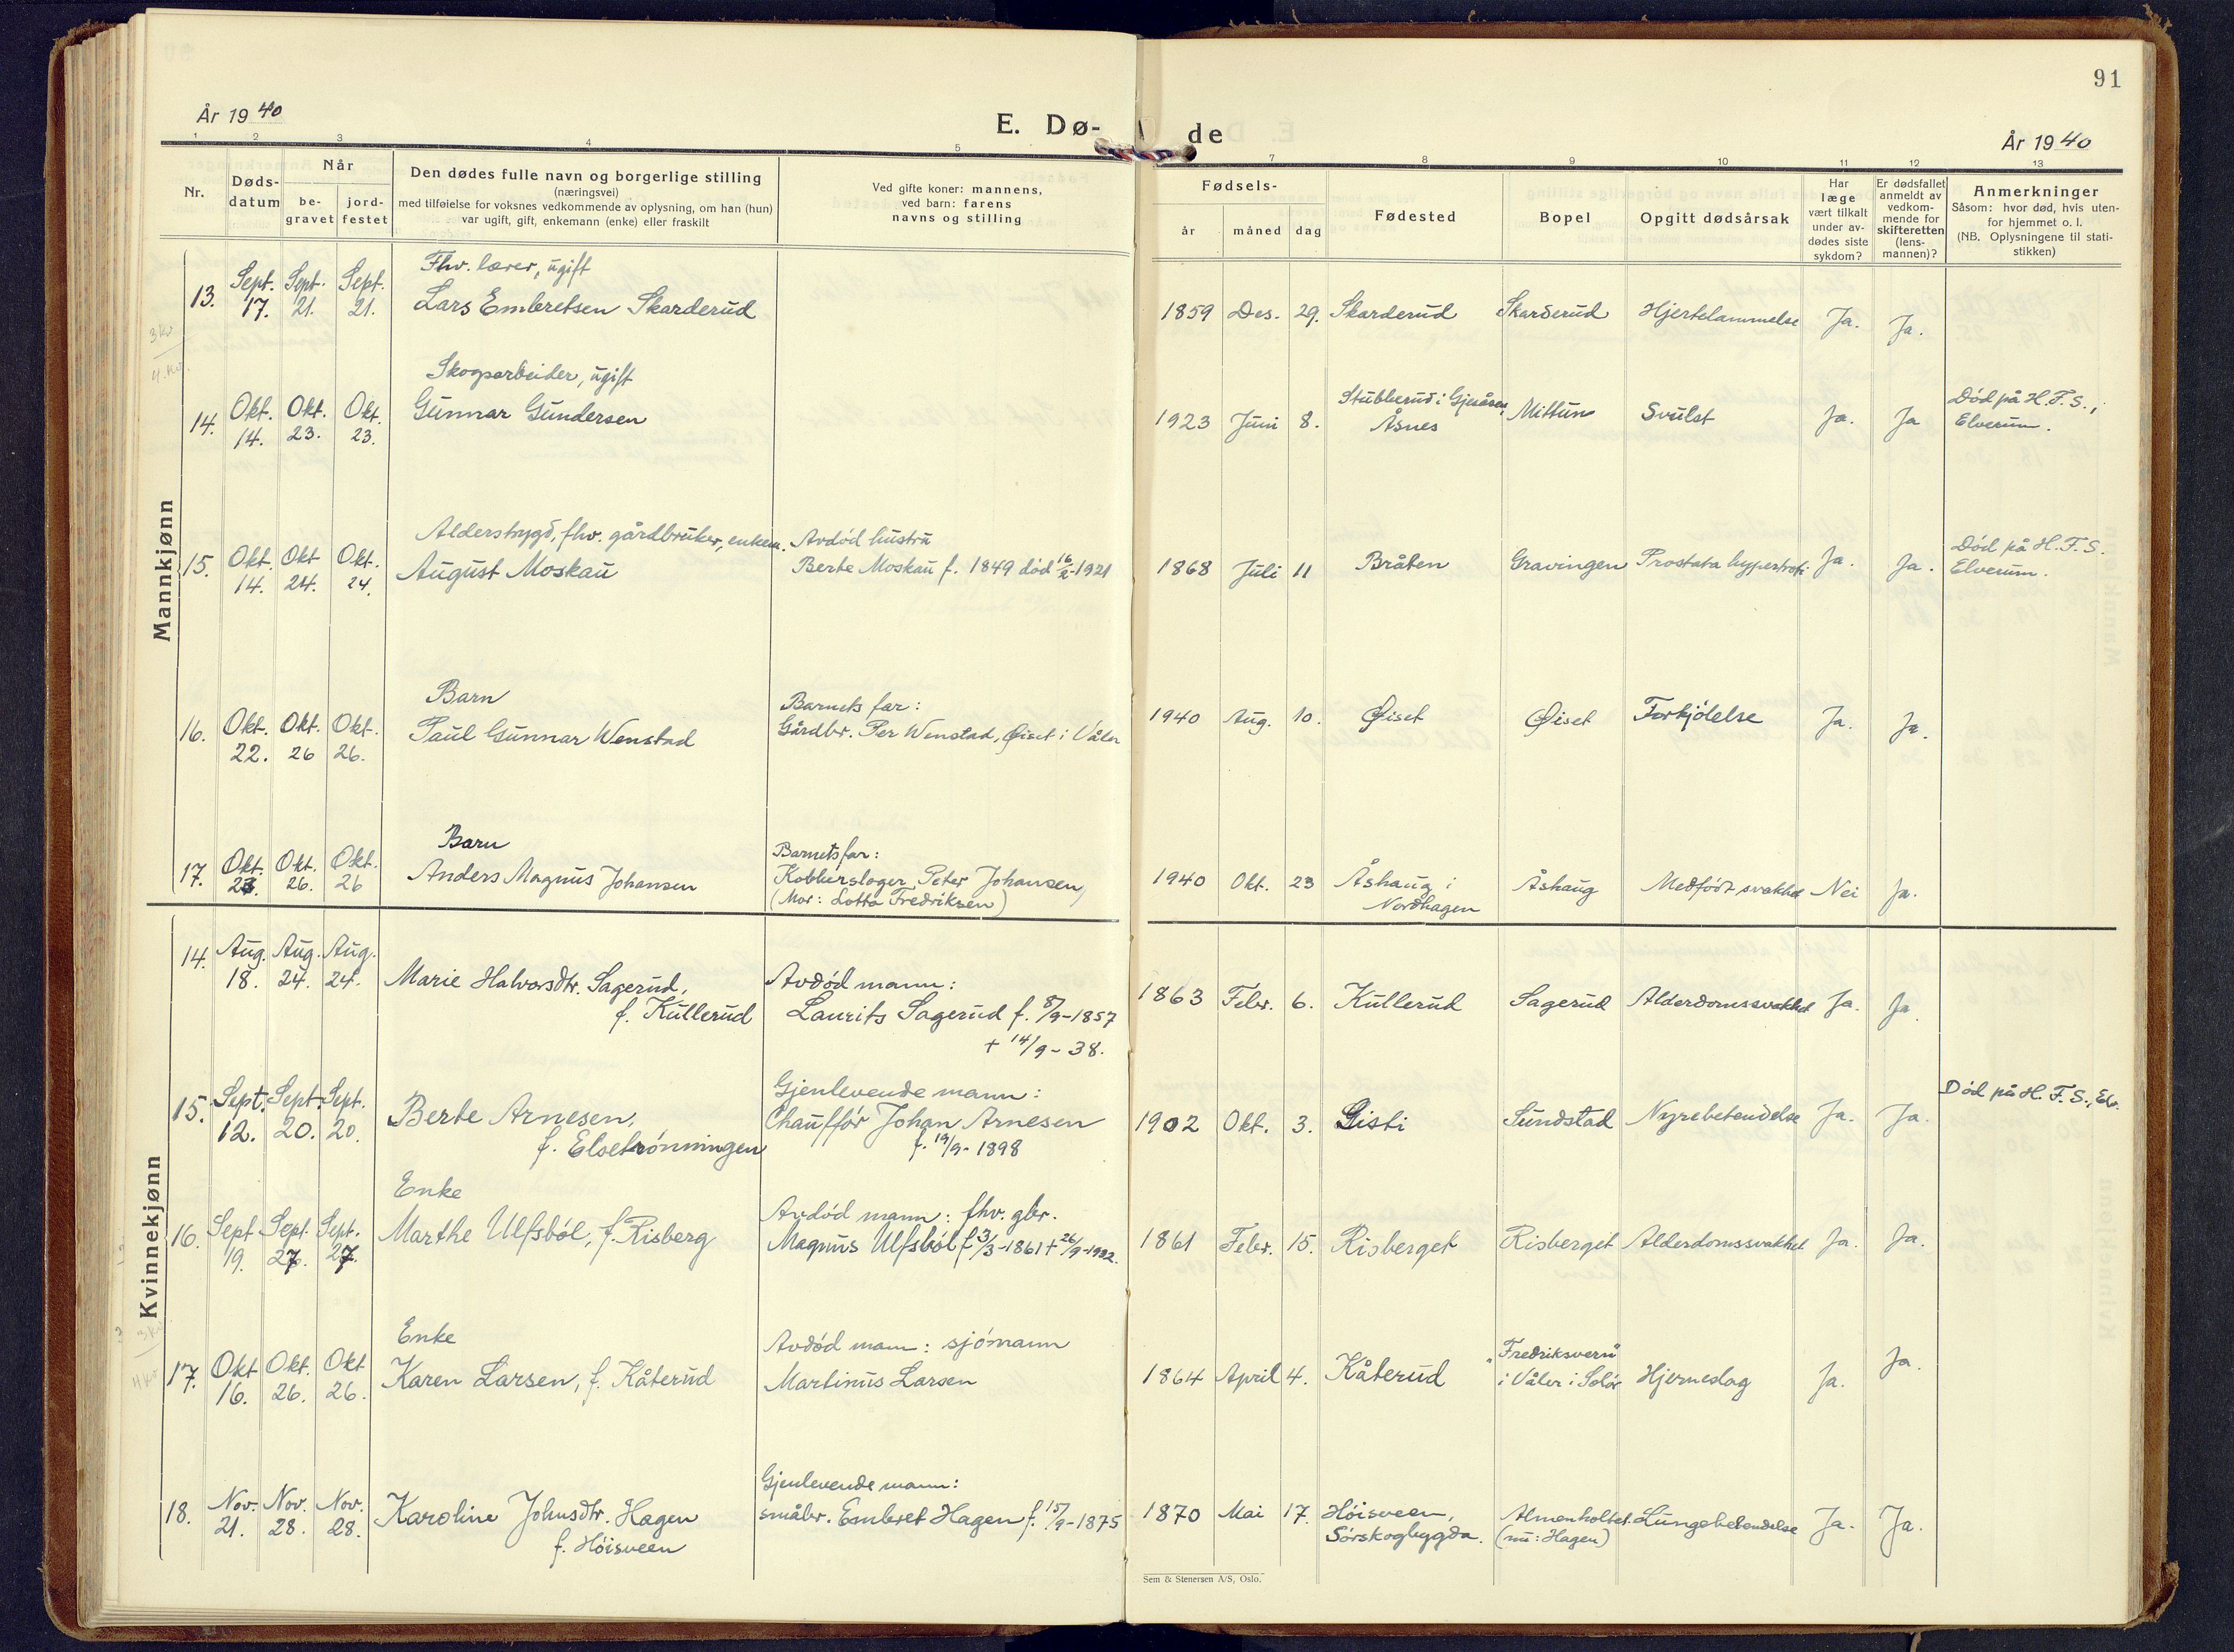 91
År 1940
E. Dø-
de
År 1940
1 2 3 4 5 7 8 9 10 11 12 13
Nr.
Døds-
datum
Når
be-
gravet
jord-
festet
Den dødes fulle navn og borgerlige stilling
(næringsvei)
med tilføielse for voksnes vedkommende av oplysning, om han (hun)
var ugift, gift, enkemann (enke) eller fraskilt
Ved gifte koner: mannens,
ved barn: farens
navns og stilling
Fødsels-
år måned dag
Fødested
Bopel
Opgitt dødsårsak
Har
læge
vært tilkalt
under av-
dødes siste
sykdom?
Er dødsfallet
anmeldt av
vedkom-
mende for
skifteretten
(lens-
mannen)?
Anmerkninger
Såsom: hvor død, hvis uten-
for hjemmet o. l.
(NB. Oplysningene til stati-
stikken)
Mannkjønn
Fhv. lærer, ugift
13. Sept. 17. Sept. 21. Sept. 21. Lars Embretsen Skarderud 1859 Des. 29. Skarderud Skarderud Hjertelammelse Ja. Ja.
3 kv
4. kv.
Skogsarbeider, ugift
14. Okt. 14. Okt. 23. Okt. 23. Gunnar Gundersen 1923 Juni 8. Stubberud i Gjesåsen,
Åsnes
Mittun Svulst Ja. Ja Død på H.F.S.,
Elverum.
Alderstrygd, fhv. gårdbruker, enkem.
15. Okt. 14. Okt 24. Okt. 24. August Moskau
Avdød hustru
Berte Moskau f. 1849 død 16/2-1921
1868 Juli 11 Bråten Gravingen Prostata hypertrofi Ja. Ja. Død på H.F.S.
Elverum.
Barn
16. Okt. 22. Okt. 26 Okt. 26. Paul Gunnar Wenstad
Barnets far:
Gårdbr. Per Wenstad, Øiset i Våler
1940 Aug. 10. Øiset Øiset Forkjølelse Ja. Ja.
Barn
17. Okt. 23. Okt. 26. Okt. 26 Anders Magnus Johansen
Barnets far:
Kobberslager Peter Johansen,
(Mor: Lotta Fredriksen)
1940 Okt. 23 Åshaug i
Nordhagen
Åshaug Medfødt svakhet Nei Ja.
Kvinnekjønn
14. Aug. 18. Aug. 24. Aug. 24. Marie Halvorsdtr. Sagerud,
f. Kullerud
Avdød mann:
Laurits Sagerud f. 8/9-1857
+ 14/9-38.
1863 Febr. 6. Kullerud Sagerud Alderdomssvakhet Ja. Ja
15. Sept. 12. Sept. 20. Sept. 20. Berte Arnesen,
f. Elsetrønningen
Gjenlevende mann:
Chauffør Johan Arnesen
f. 19/9-1898
1902 Okt. 3. Gisti Sundstad Nyrebetendelse Ja. Ja. Død på H.F.S., Elv.
Enke
16. Sept 19. Sept. 27. Sept. 27. Marthe Ulfsbøl, f. Risberg
Avdød mann: fhv. gbr.
Magnus Ulfsbøl f. 3/3-1861 + 26/9-1922.
1861 Febr. 15. Risberget Risberget Alderdomssvakhet Ja. Ja.
3 kv
4 kv
Enke
17. Okt 16. Okt. 26. Okt 26. Karen Larsen, f. Kåterud
Avdød mann: sjømann
Martinus Larsen
1864 April 4. Kåterud "Fredriksvern"
i Våler i Solør
Hjerneslag Ja. Ja.
18. Nov. 21. Nov. 28. Nov. 28. Karoline Johnsdtr. Hagen
f. Høisveen
Gjenlevende mann:
småbr. Embret Hagen f. 15/9-1875
1870 Mai 17. Høisveen,
Sørskogbygda.
Almenholtet.
(nu: Hagen)
Lungebetendelse Ja. Ja.
Sem & Stenersen A/S, Oslo.